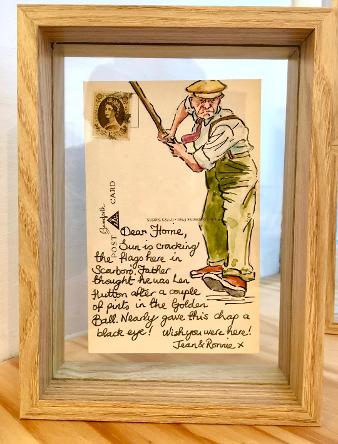 POST CARD
Dear Home,
Sun is cracking
the flags here in
Scarboro'. Father
thought he was Len
Hutton after a couple
of pints in the Golden
Ball. Nearly gave this chap a
black eye! Wish you were here!
Jean & Ronnie x